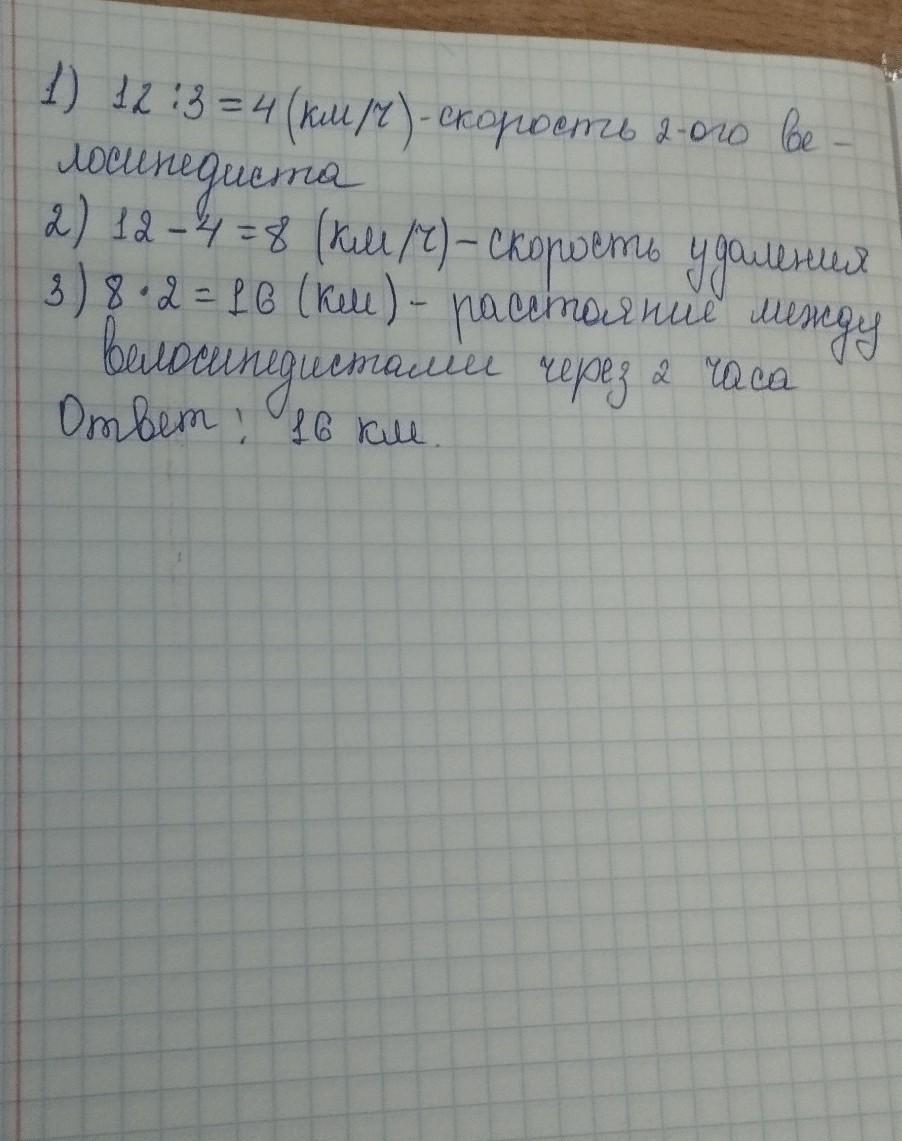 1) 12 : 3 = 4 (км/ч) - скорость 2-ого ве -
лосипедиста
2) 12 - 4 = 8 (км/ч) - скорость удаления
3) 8 · 2 = 16 (км) - расстояние между
велосипедистами через 2 часа
Ответ : 16 км.